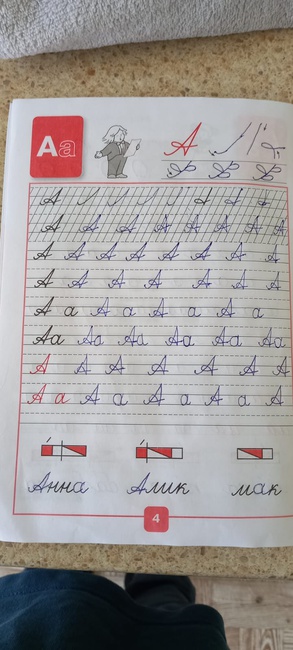 Аа А
А А
А А А А А А А А
А А А А А А А А
А А А А А А А
А а А а А а А а
Аа Аа Аа Аа Аа Аа
А А А А А А А
А а А а А а А а А
Анна Алик мак
4